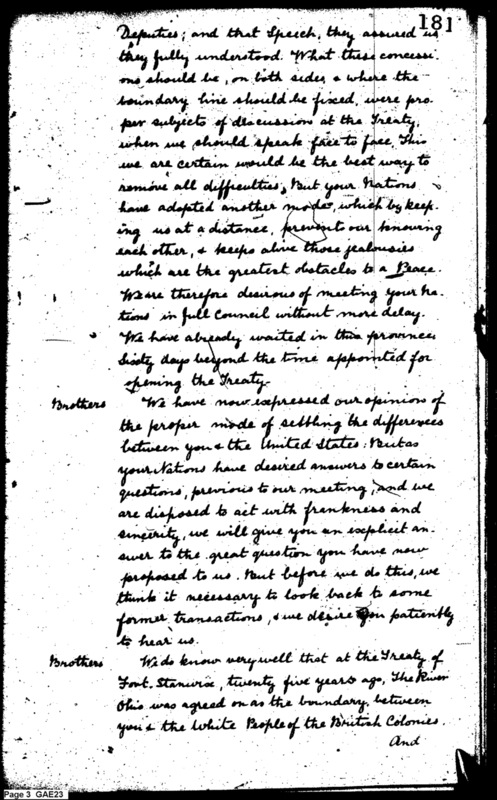 181
Deputies; and that Speech, they assured us
they fully understood. What these concessi-
ons should be, on both sides, & where the
boundary line should be fixed, were pro-
per subjects of discussion at the Treaty,
when we should speak face to face. This
we are certain would be the best way to
remove all difficulties. But your Nations
have adopted another mode, which by keep-
ing us at a distance, prevents our knowing
each other, & keeps alive those jealousies
which are the greatest obstacles to a Peace.
We are therefore desirous of meeting your Na-
tions in full Council without more delay.
We have already waited in this province
Sixty days beyond the time appointed for
opening the Treaty.
Brothers We have now expressed our opinion of
the proper mode of settling the differences
between you & the United States: But as
your Nations have desired answers to certain
questions, previous to our meeting, and we
are disposed to act with frankness and
sincerity, we will give you an explicit an-
swer to the great question you have now
proposed to us. But before we do this, we
think it necessary to look back to some
former transactions, & we desire you patiently
to hear us.
Brothers We do know very well that at the Treaty of
Fort Stanwix, twenty five years ago, The River
Ohio was agreed on as the boundary between
you & the White People of the British Colonies.
And
Page 3 GAE23